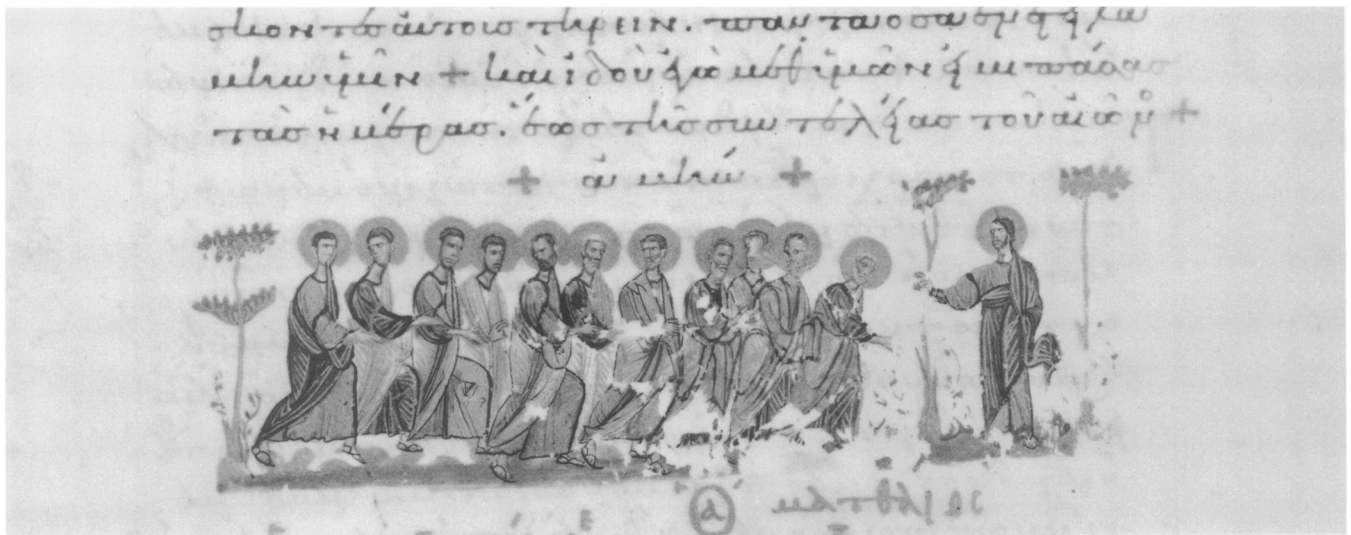 σκοντες αὐτοὺς τηρεῖν. πάντα ὅσα ἐνετειλά
μην ὑμῖν + καὶ ἰδοὺ ἐγὼ μεθ ὑμῶν εἰμι πάσας
τὰς ἡμέρας. ἕως τῆς συντελείας τοῦ αἰῶνος +
+ ἀμήν +